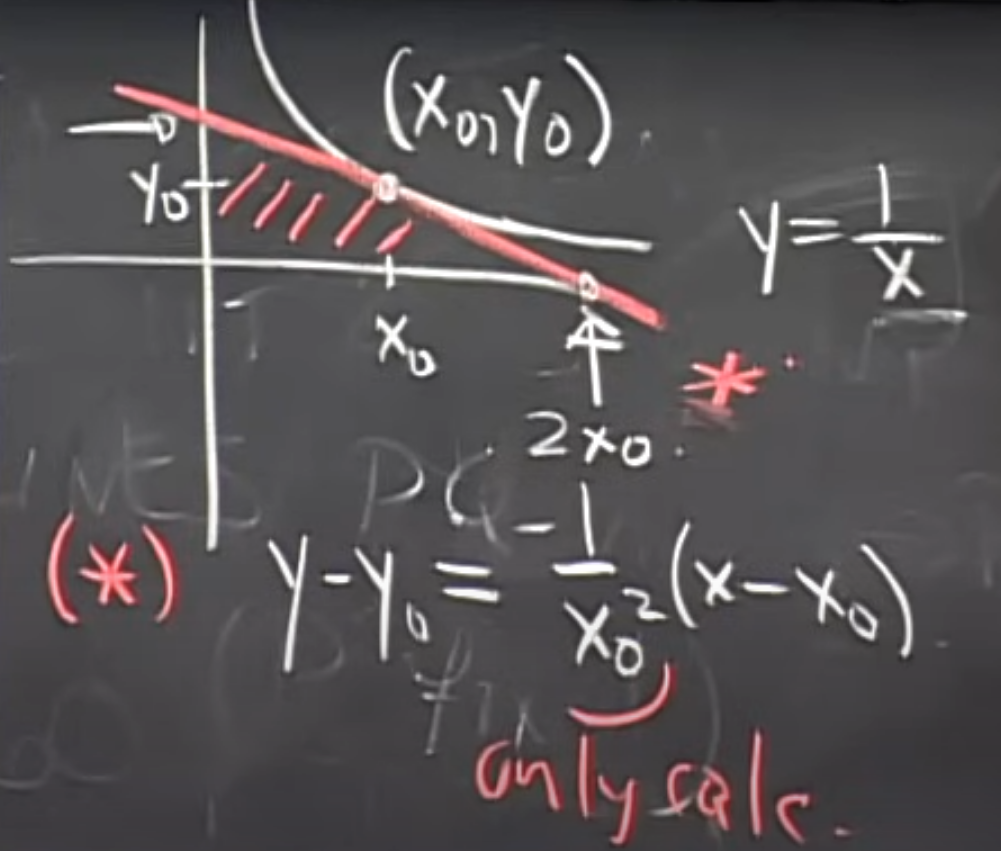 (x₀, y₀)
y₀
y = 1/x
x₀
*
2x₀
(*) y - y₀ = -1/x₀² (x - x₀)
only calc.